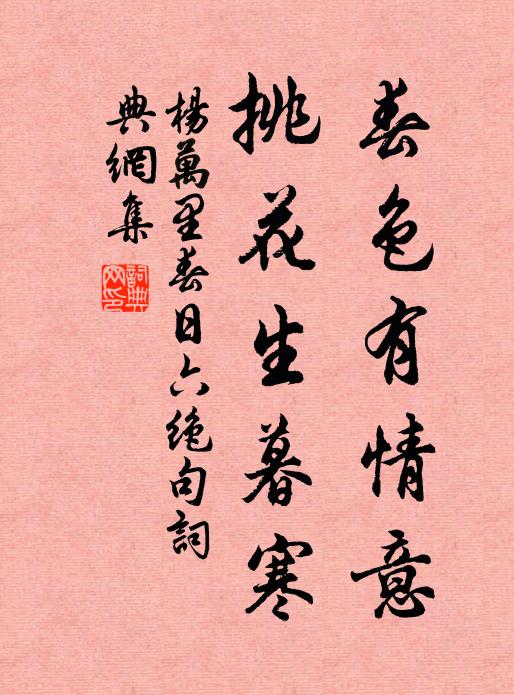 春色有情意
桃花生暮寒
楊萬里春日六絕句詞
典網集
詞典網印